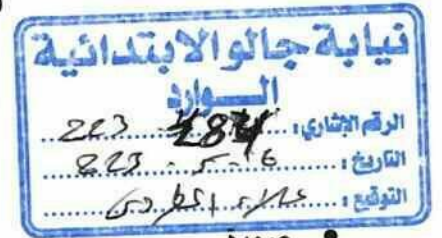 نيابة جالو الابتدائية
الوارد
الرقم الإشاري: 284 ... 223
التاريخ: 6 - 5 - 223
التوقيع: